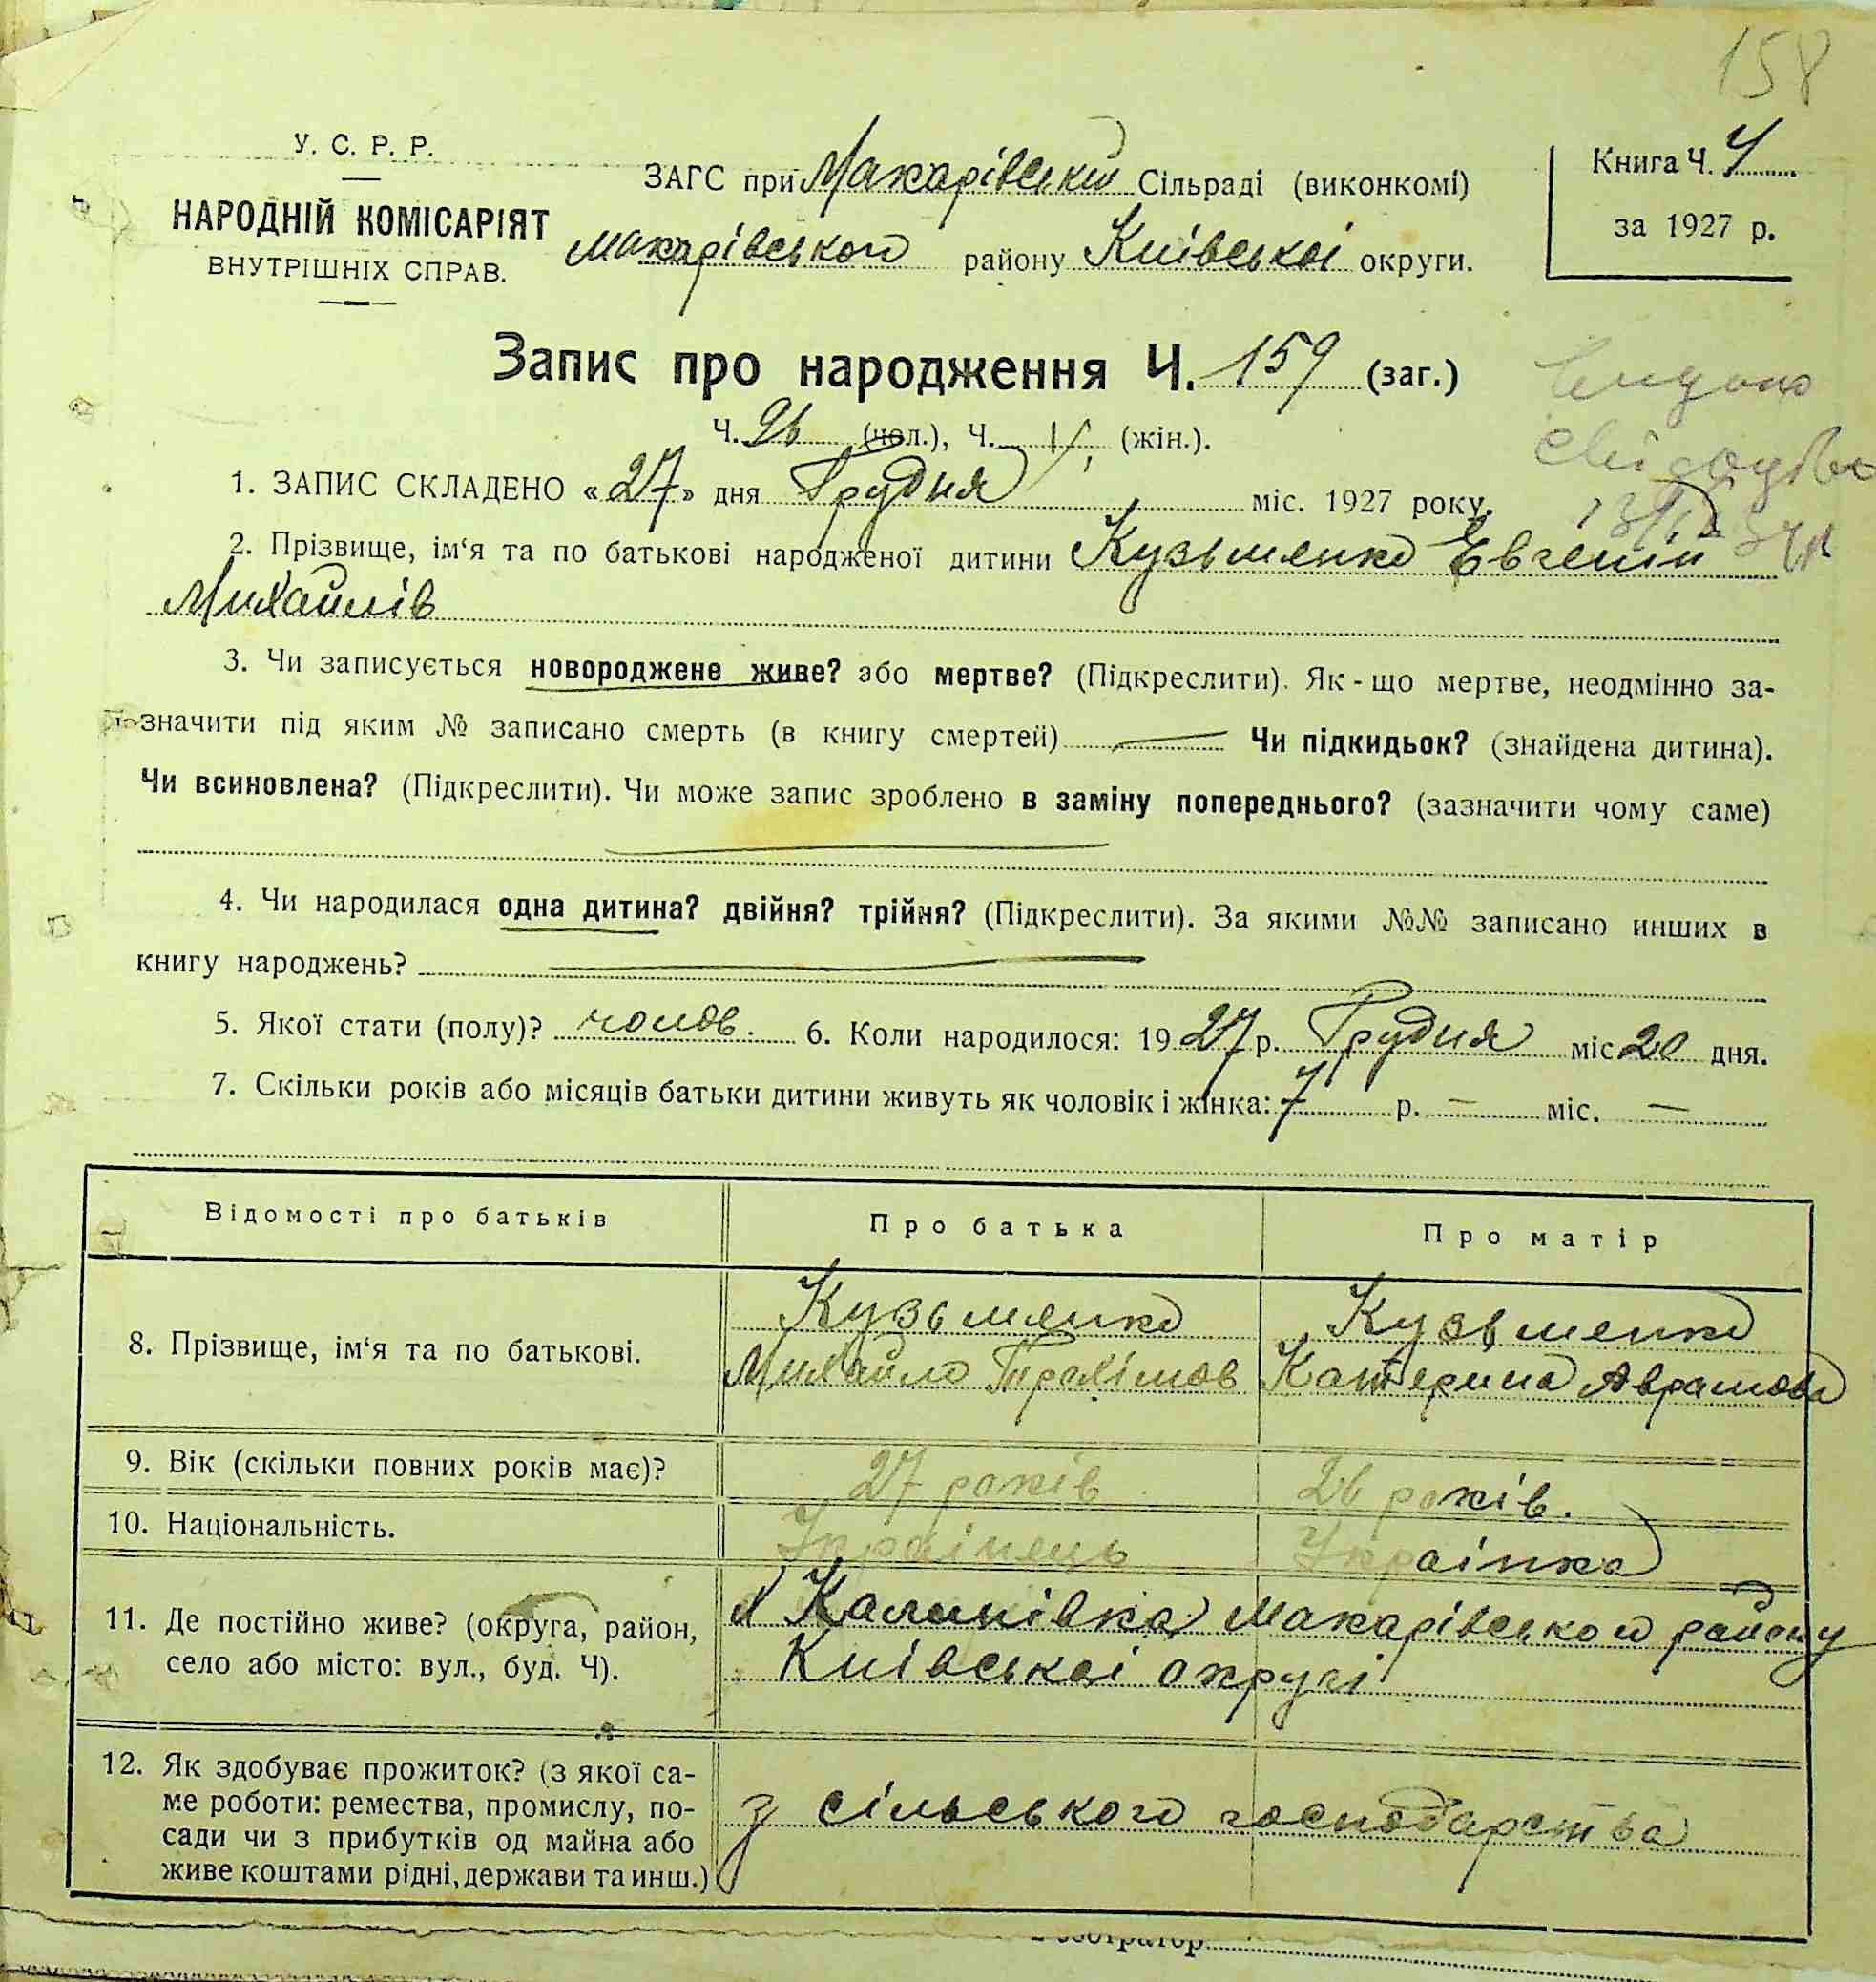 158
У. С. Р. Р.
НАРОДНІЙ КОМІСАРІЯТ
ВНУТРІШНІХ СПРАВ.
ЗАГС при Макарівській Сільраді (виконкомі)
Макарівського району Київської округи.
Книга Ч. 4
за 1927 р.
Запис про народження Ч. 159 (заг.)
Ч. 96 (чол.), Ч. (жін.).
1. ЗАПИС СКЛАДЕНО «27» дня Грудня міс. 1927 року.
2. Прізвище, ім‘я та по батькові народженої дитини Кузьменко Євгеній
Михайлів
3. Чи записується новороджене живе? або мертве? (Підкреслити). Як-що мертве, неодмінно за-
значити під яким № записано смерть (в книгу смертей) — Чи підкидьок? (знайдена дитина).
Чи всиновлена? (Підкреслити). Чи може запис зроблено в заміну попереднього? (зазначити чому саме)
4. Чи народилася одна дитина? двійня? трійня? (Підкреслити). За якими №№ записано инших в
книгу народжень? —
5. Якої стати (полу)? чолов. 6. Коли народилося: 1927 р. Грудня міс 20 дня.
7. Скільки років або місяців батьки дитини живуть як чоловік і жінка: 7 р. — міс. —
Відомості про батьків Про батька Про матір
8. Прізвище, ім‘я та по батькові.
Кузьменко
Михайло Трохімов
Кузьменко
Катерина Аврамова
9. Вік (скільки повних років має)? 27 років 26 років.
10. Національність. Українець Українка
11. Де постійно живе? (округа, район,
село або місто: вул., буд. Ч).
Калинівка Макарівського району
Київської округі
12. Як здобуває прожиток? (з якої са-
ме роботи: ремества, промислу, по-
сади чи з прибутків од майна або
живе коштами рідні, держави та инш.)
з сільського господарства